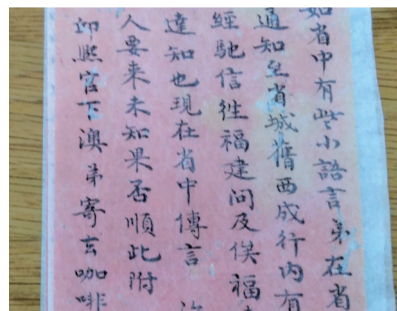 如省中有些小語言弟在省
通知至省城舊西成行內有
經馳信往福建問及俟福
達知也現在省中傳言
人要来未知果否順此附
熙官下澳弟寄去咖啡